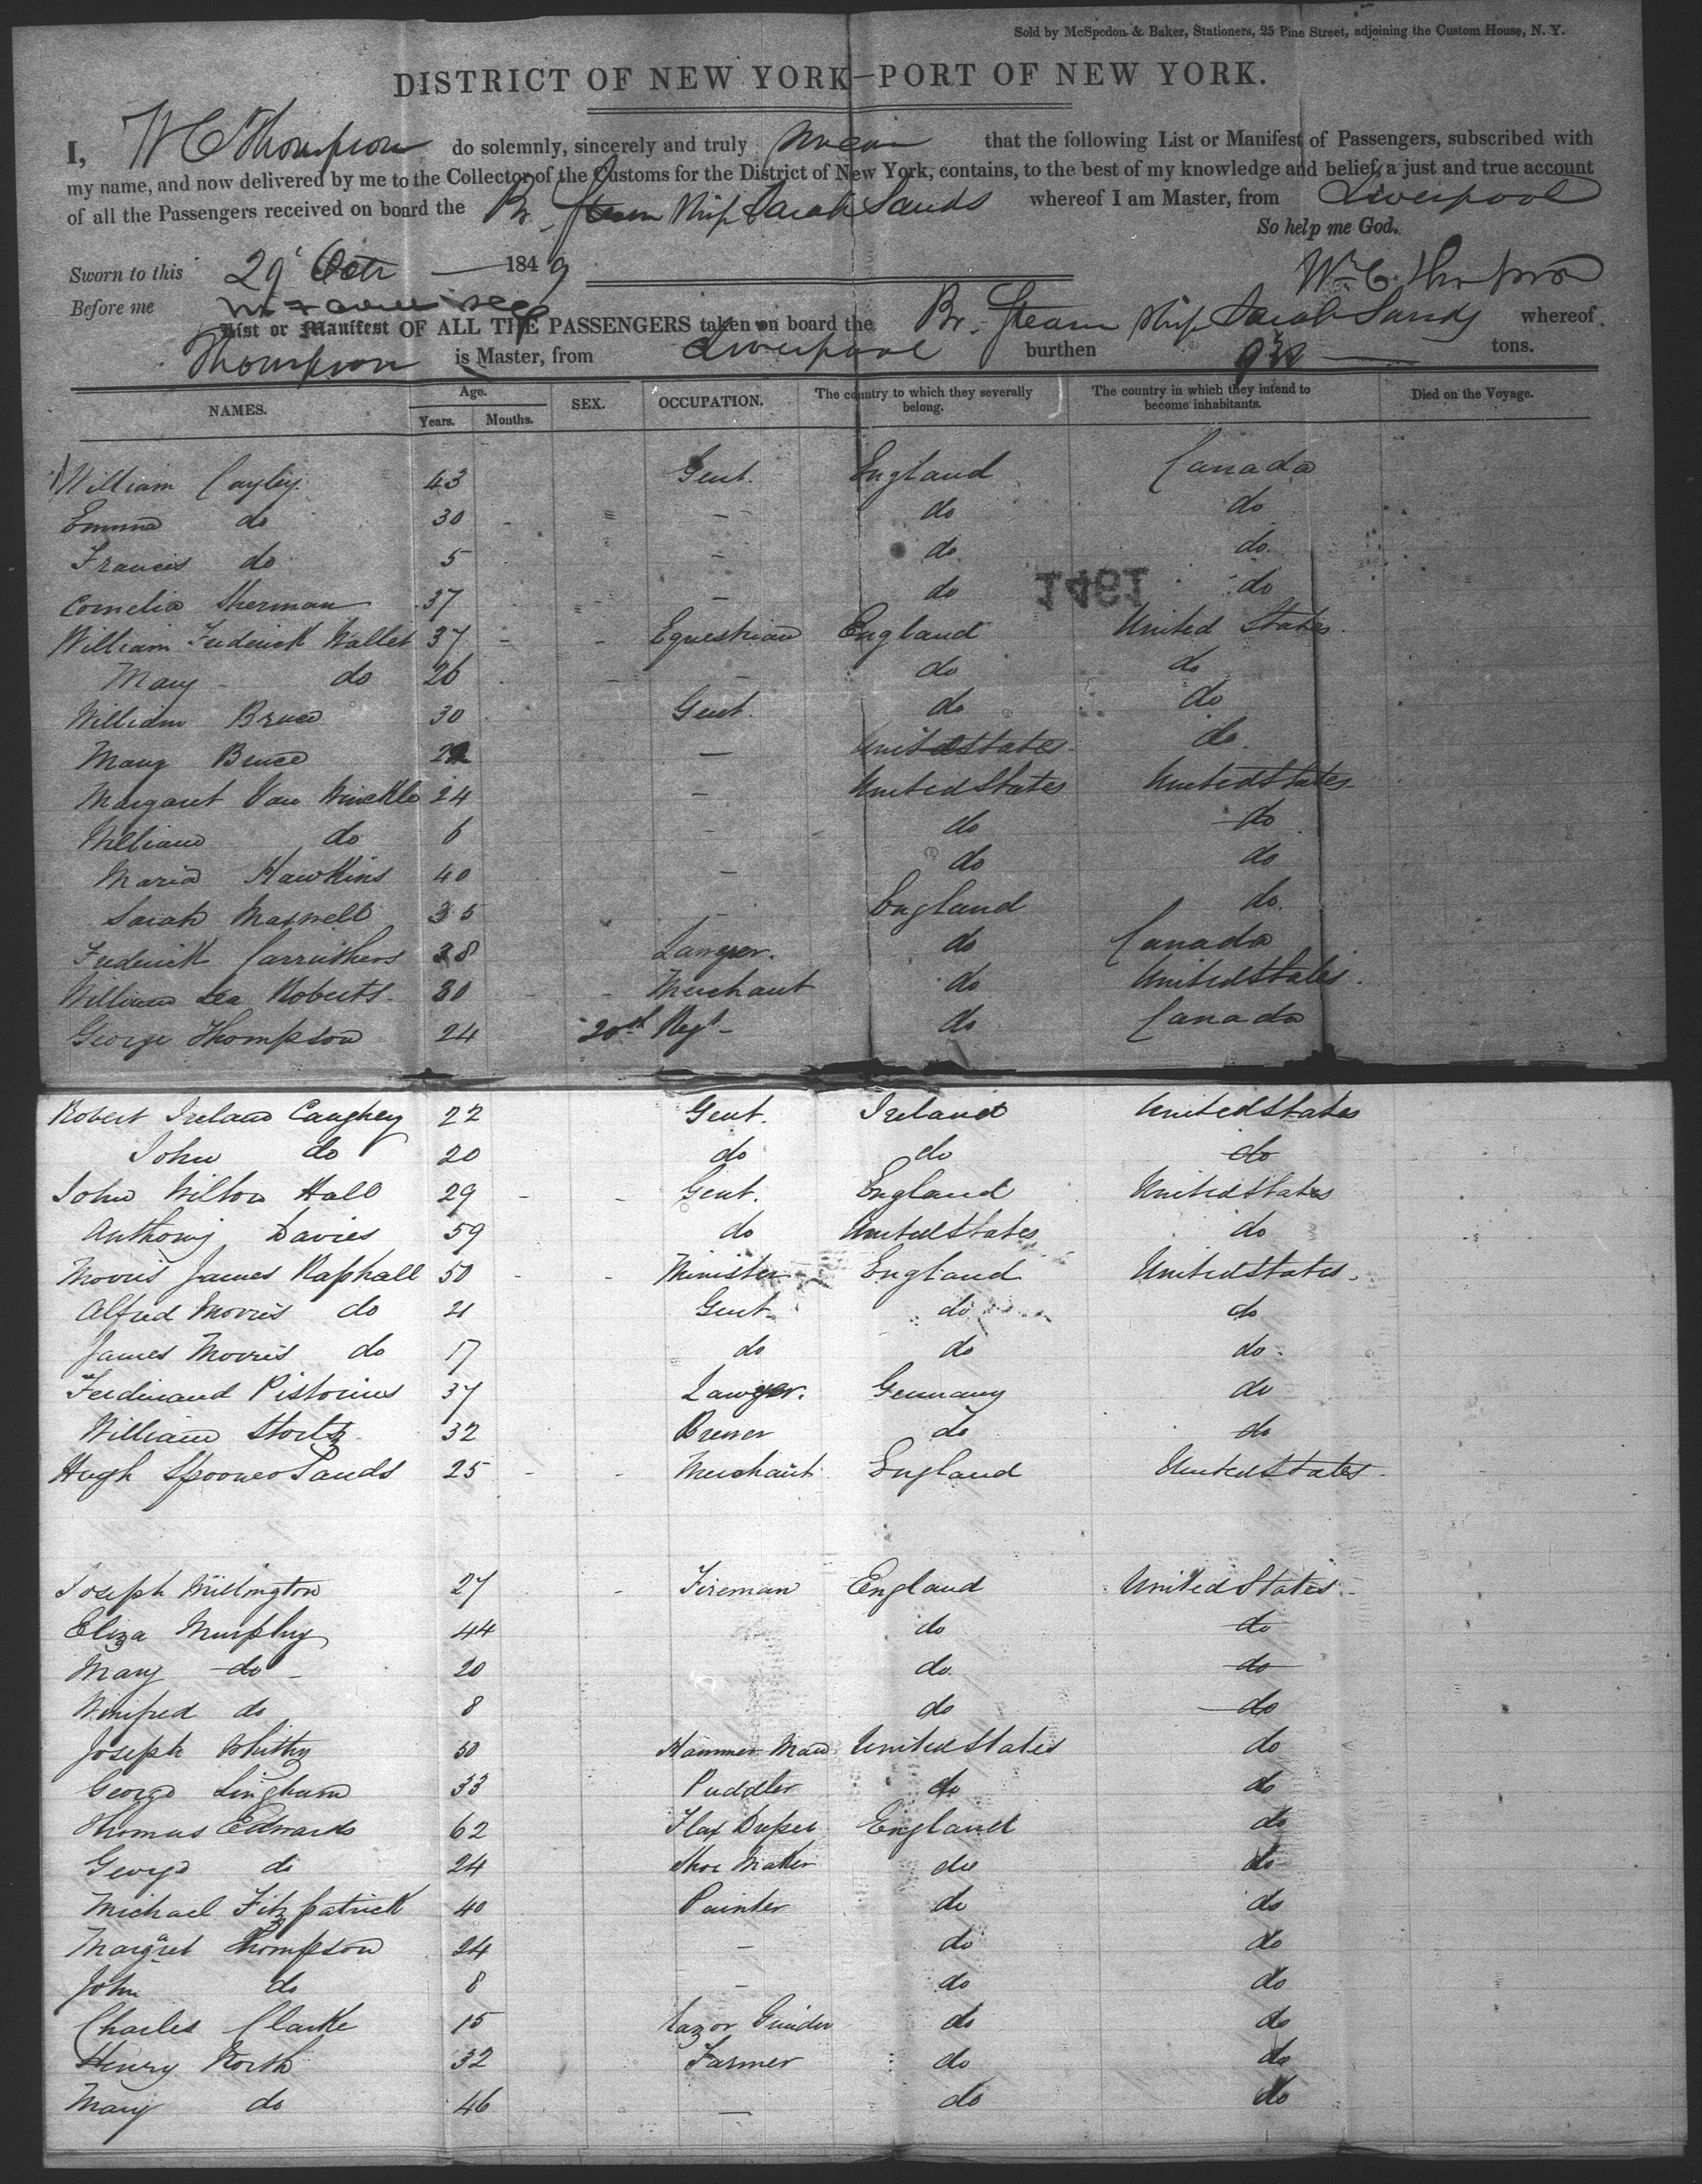 Sold by McSpedon & Baker, Stationers, 25 Pine Street, adjoining the Custom House, N. Y.
DISTRICT OF NEW YORK—PORT OF NEW YORK.
I, W C Thompson do solemnly, sincerely and truly swear that the following List or Manifest of Passengers, subscribed with
my name, and now delivered by me to the Collector of the Customs for the District of New York, contains, to the best of my knowledge and belief, a just and true account
of all the Passengers received on board the Br. Steam Ship Sarah Sands whereof I am Master, from Liverpool
So help me God.
Sworn to this 29 Octr 1849
Wm C. Thompson
Before me
List or Manifest OF ALL THE PASSENGERS taken on board the Br. Steam Ship Sarah Sands whereof
Thompson is Master, from Liverpool burthen tons.
NAMES. Age. Years. Months. SEX. OCCUPATION. The country to which they severally belong. The country in which they intend to become inhabitants. Died on the Voyage.
William Cayley 43 Gent. England Canada
Emma do 30 - = - do do
Francis do 5 - do do
1461
Cornelia Sherman 37 - do do
William Frederick Wallet 37 - - Equestrian England United States
Mary do 26 - do do
William Bruce 30 Gent. do do
Mary Bruce - United States do
Margaret Van Winckle 24 - United States United States
William do 6 - do do
Maria Hawkins 40 - do do
Sarah Maxwell 35 - England do
Frederick Carruthers 38 Lawyer. do Canada
William Lea Roberts 30 - - Merchant do United States
George Thompson 24 20th Regt - do Canada
Robert Ireland Caughey 22 Gent. Ireland United States
John do 20 do do do
John Wilton Hall 29 - - Gent. England United States
Anthony Davies 59 do United States do
Morris James Raphall 50 - - Minister England United States
Alfred Morris do 21 Gent do do
James Morris do 17 do do do
Ferdinand Pistorius 37 Lawyer. Germany do
William Stortz 32 Brewer do do
Hugh Spooner Sands 25 - - Merchant England United States
Joseph Millington 27 - Fireman England United States
Eliza Murphy 44 do do
Mary do 20 do do
Winifred do 8 do do
Joseph Whitby 50 Hammer Man United States do
George Lingham 33 Puddler do do
Thomas Edwards 62 Flax Dresser England do
George do 24 Shoe Maker do do
Michael Fitzpatrick 40 Painter do do
Margaret Thompson 24 - do do
John do 8 - do do
Charles Clarke 15 Razor Grinder do do
Henry North 32 Farmer do do
Mary do 46 - do do